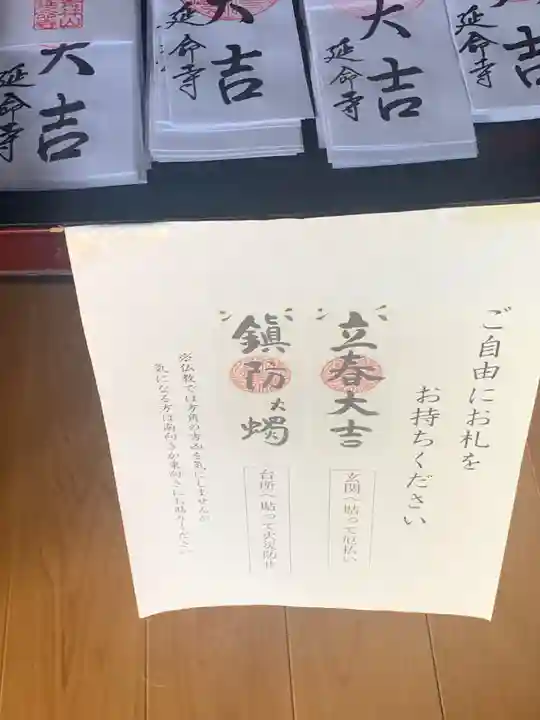 大吉
延命寺
大吉
延命寺
大吉
延命寺
大吉
延命寺
ご自由にお札を
お持ちください
立春大吉
玄関へ貼って厄払い
鎮防火燭
台所へ貼って火災防せ
※仏教では方角の吉凶を気にしませんが
気になる方は南向きか東向きにお貼りください